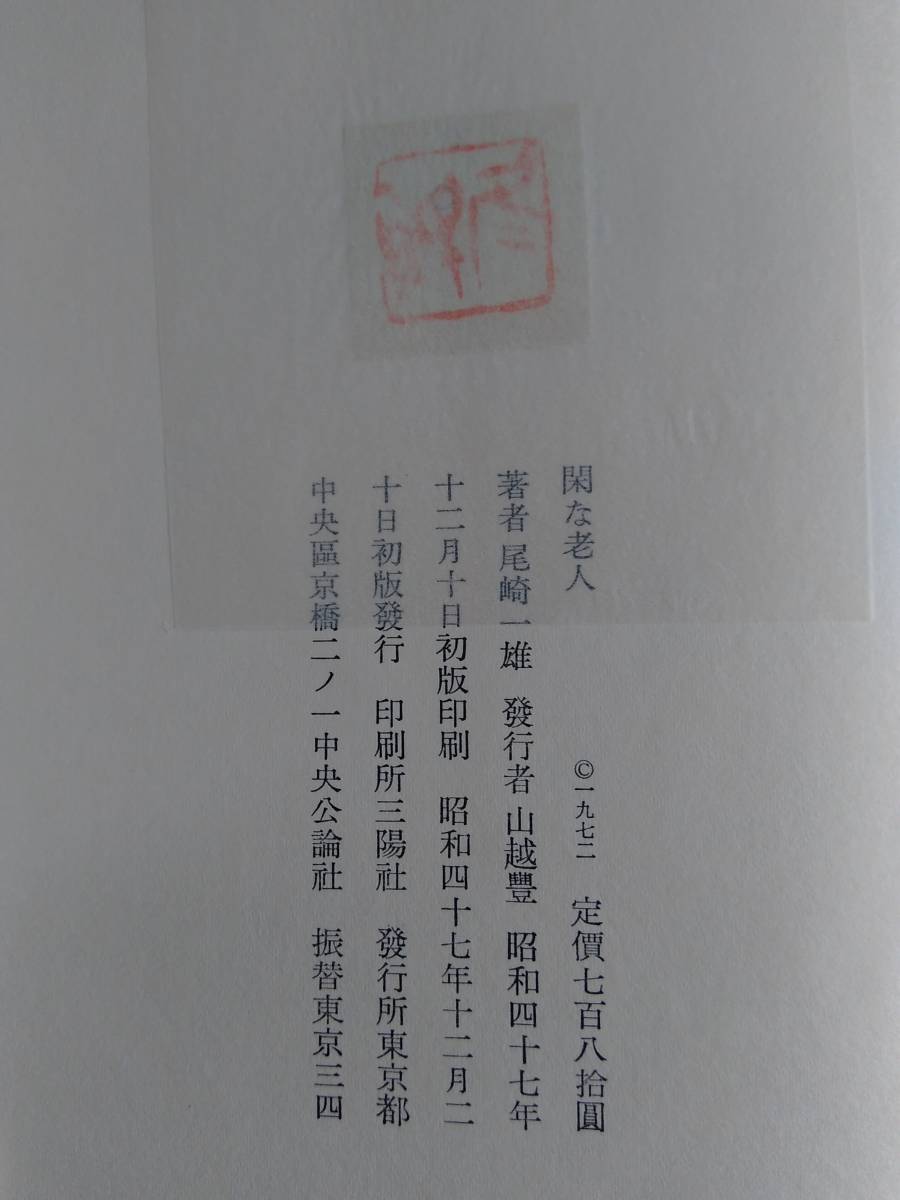 閑な老人 ©一九七二 定價七百八拾圓
著者 尾崎一雄 發行者 山越豐 昭和四十七年
十二月十日初版印刷 昭和四十七年十二月二
十日初版發行 印刷所三陽社 發行所東京都
中央區京橋二ノ一中央公論社 振替東京三四